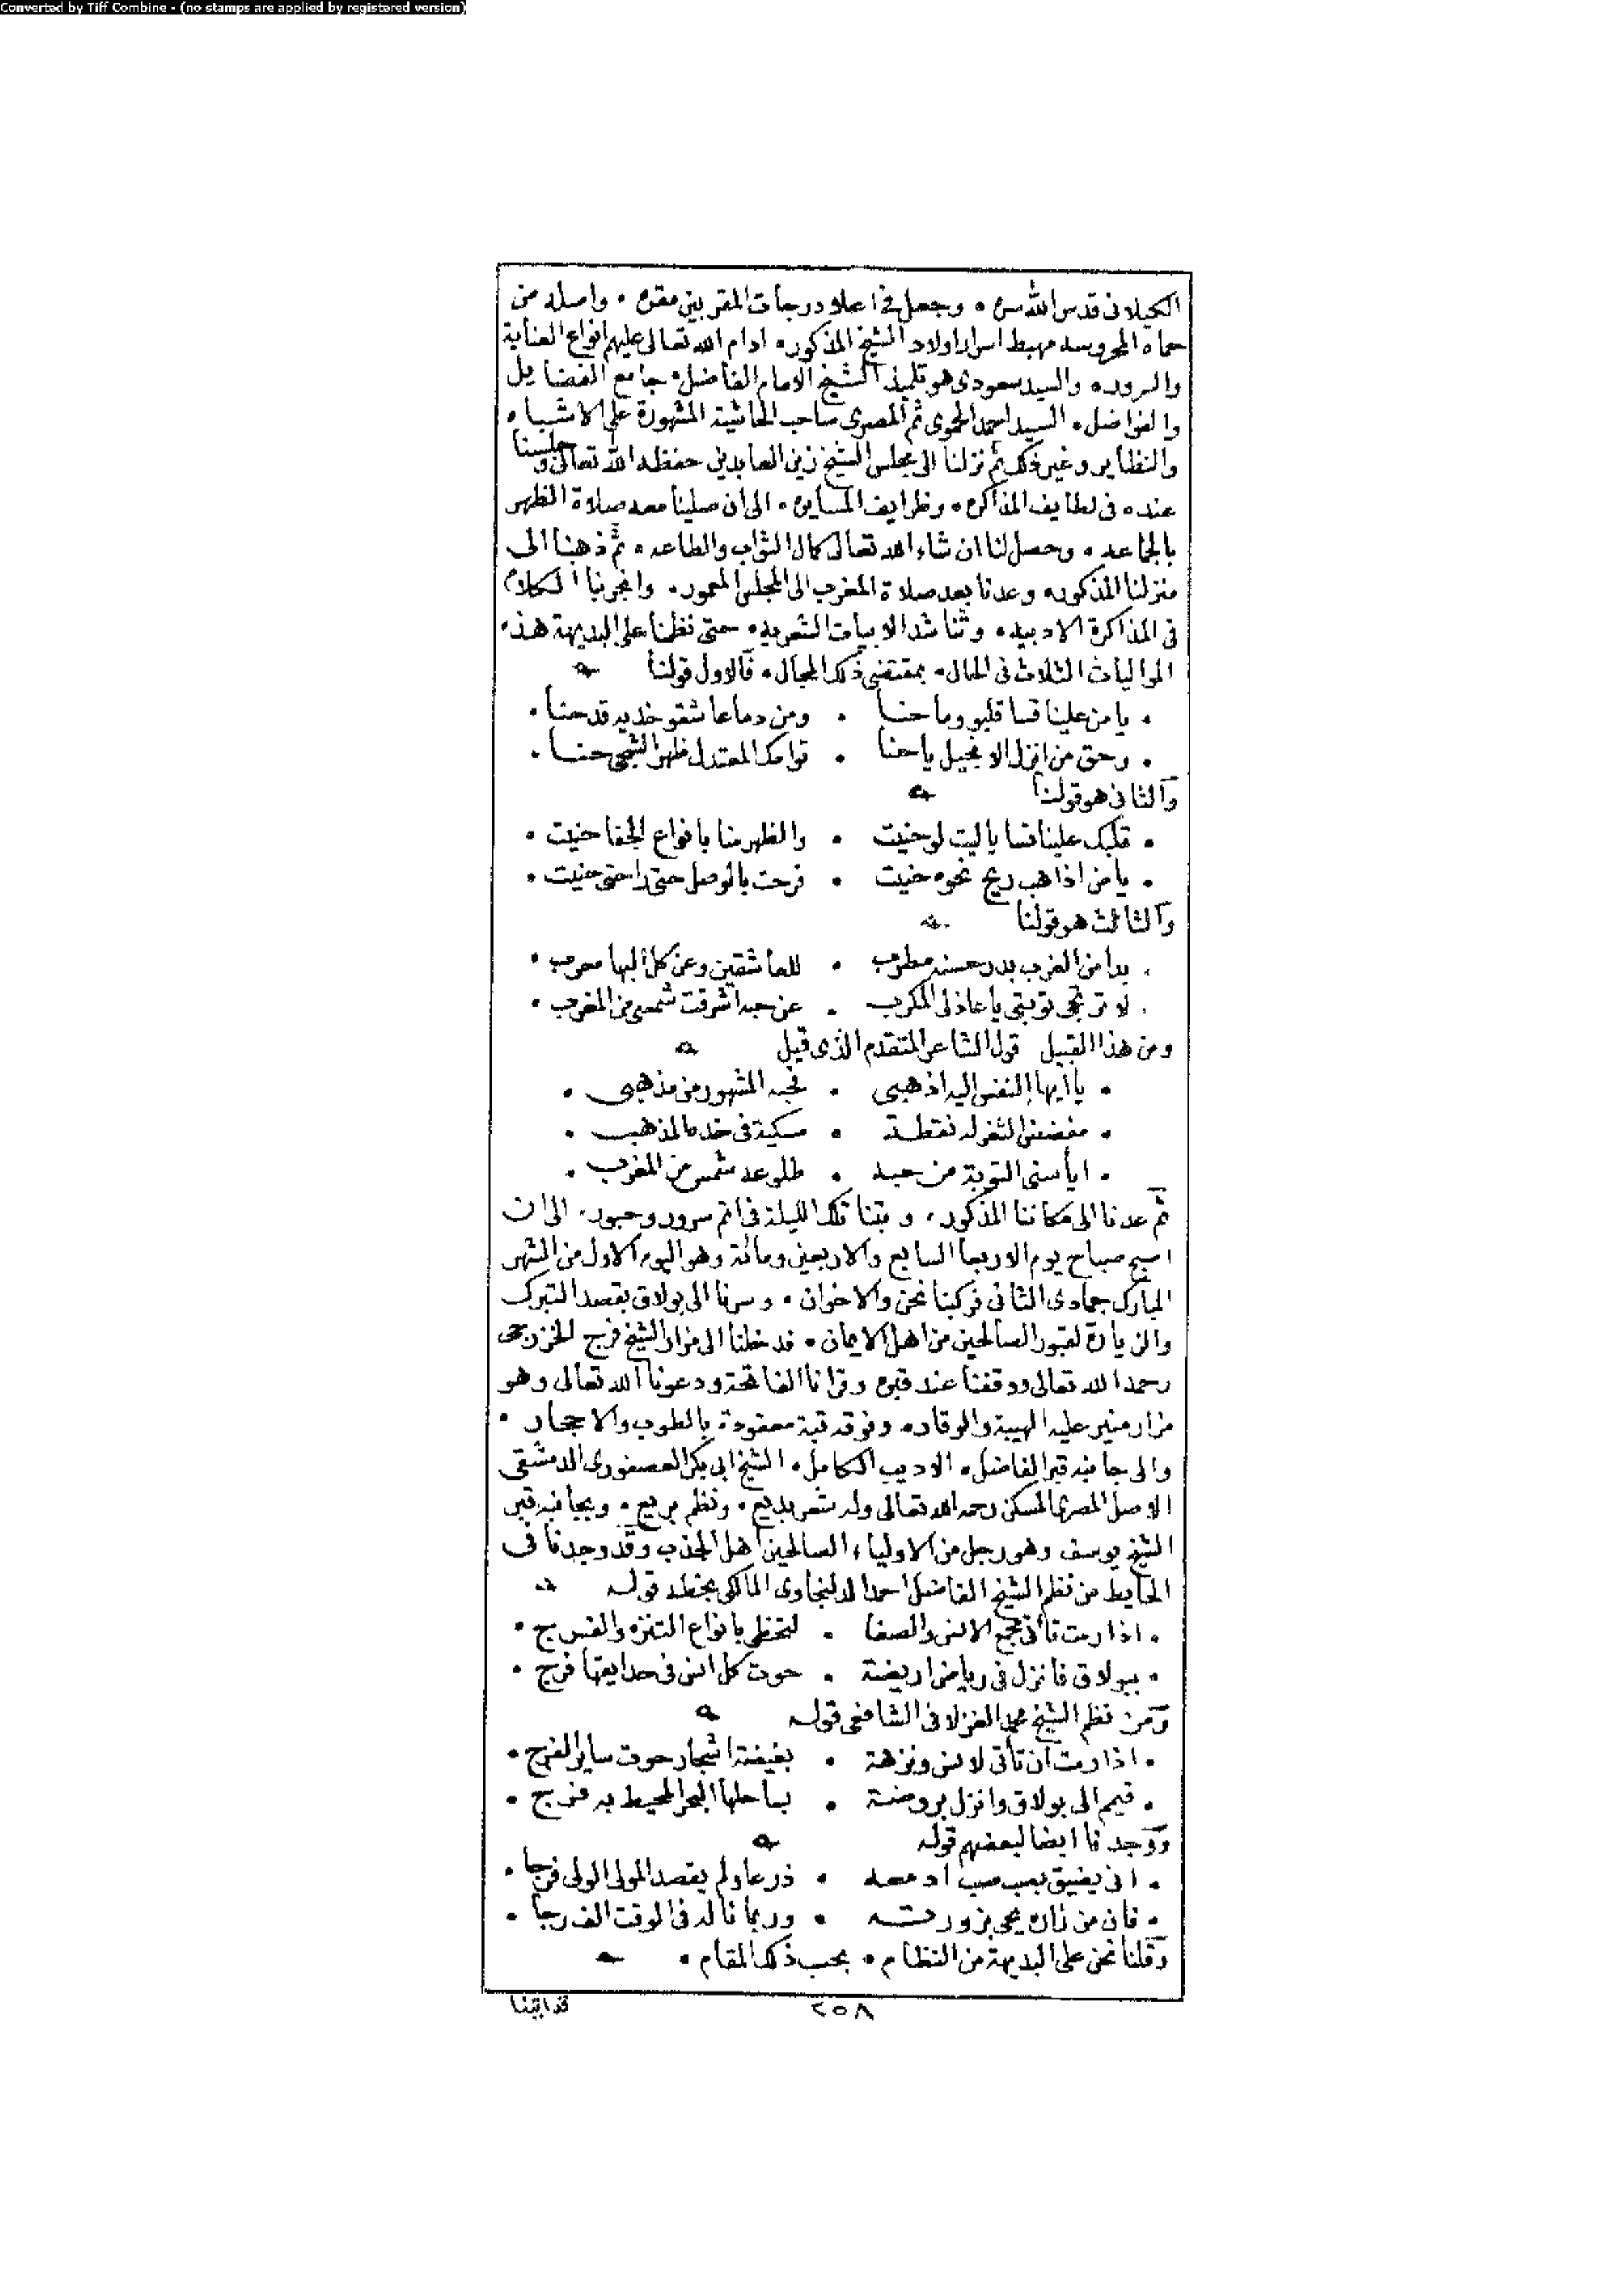 Converted by Tiff Combine - (no stamps are applied by registered version)
الكيلانى قدس الله سره • وجعل فى اعلا درجات المقربين مقره • واصله من
حماه المحروسه مهبط اسرار اولاد الشيخ المذكور • ادام الله تعالى عليهم انواع العناية
والسرور • والسيد سعودى هو تلميذ الشيخ الامام الفاضل • جامع الفضايل
والفواضل • السيد احمد الحموى ثم المصرى صاحب الحاشية المشهورة على الاشباه
والنظاير وغير ذلك ثم نزلنا الى مجلس الشيخ زين العابدين حفظه الله تعالى وجلسنا
عنده فى لطايف المذاكره • وظرايف المسايره • الى ان صلينا معه صلاة الظهر
بالجماعه • وحصل لنا ان شاء الله تعالى كمال الثواب والطاعه • ثم ذهبنا الى
منزلنا المذكور • وعدنا بعد صلاة المغرب الى المجلس المعمور • وانجر بنا الكلام
فى المذاكرة الادبيه • وتناشد الابيات الشعريه • حتى نظمنا على البديهة هذه
المواليات الثلاث فى الحال • بمقتضى ذلك المجال • فالاول قولنا
• يا من علينا قسا قلبو وما حنا • ومن دما عاشقو خديه قد حنا •
• وحق من انزل الانجيل ياحنا • قوامك المعتدل ظهر الشجى حنا •
والثانى هو قولنا
• قلبك علينا قسا يا ليت لو حنيت • والظهر منا بانواع الجفا حنيت •
• يا من اذا هب ريح نحوه حنيت • فرحت بالوصل حتى راحتى حنيت •
والثالث هو قولنا
• بدا من الغرب بدر حسنه مطرب • للعاشقين وعن كل البها معرب •
• لو ترتجى توبتى يا عاذلى المكرب • عن حبه اشرقت شمسى من المغرب •
ومن هذا القبيل قول الشاعر المتقدم الذى قيل
• يا ايها النفس اليه اذهبى • فحبه المشهور من مذهبى •
• مفضض الثغر له نقطة • مسكية فى خده المذهب •
• ايأسنى التوبة من حبه • طلوعه شمس من المغرب •
ثم عدنا الى مكاننا المذكور • وبتنا تلك الليلة فى اتم سرور وحبور • الى ان
اصبح صباح يوم الاربعا السابع والاربعين ومائة وهو اليوم الاول من الشهر
المبارك جمادى الثانى فركبنا نحن والاخوان • وسرنا الى بولاق بقصد التبرك
والزيارة لقبور الصالحين من اهل الايمان • فدخلنا الى مزار الشيخ فرج الخزرجى
رحمه الله تعالى ووقفنا عند قبره وقرانا الفاتحة ودعونا الله تعالى وهو
مزار منير عليه الهيبة والوقار • وفوقه قبة معقودة بالطوب والاحجار •
والى جانبه قبر الفاضل • الاديب الكامل • الشيخ ابى بكر العصفورى الدمشقى
الاصل المصرى المسكن رحمه الله تعالى وله شعر بديع • ونظم مريع • وبجانبه قبر
الشيخ يوسف وهو رجل من الاولياء الصالحين اهل الجذب وقد وجدنا فى
الحايط من نظم الشيخ الفاضل احمد الدلنجاوى المالكى بخطه قوله
• اذا رمت تأتى مجمع الانس والصفا • لتحظى بانواع التنزه والفرج •
• ببولاق فانزل فى رياض اريضة • حوت كل انس فى حدايقها فرج •
ومن نظم الشيخ محمد الغزلانى الشافعى قوله
• اذا رمت ان تأتى لانس ونزهة • بغيضة اشجار حوت ساير الفرج •
• فيمم الى بولاق وانزل بروضة • بساحلها البحر المحيط به فرج •
ووجدنا ايضا لبعضهم قوله
• انى يضيق بصب صب ادمعه • ذرعا ولم يقصد المولى الولى فرجا •
• فان من زاره يحى بزورته • وربما ناله فى الوقت الف رجا •
وقلنا نحن على البديهة من النظام • بحسب ذلك المقام •
قد اتينا
٢٥٨